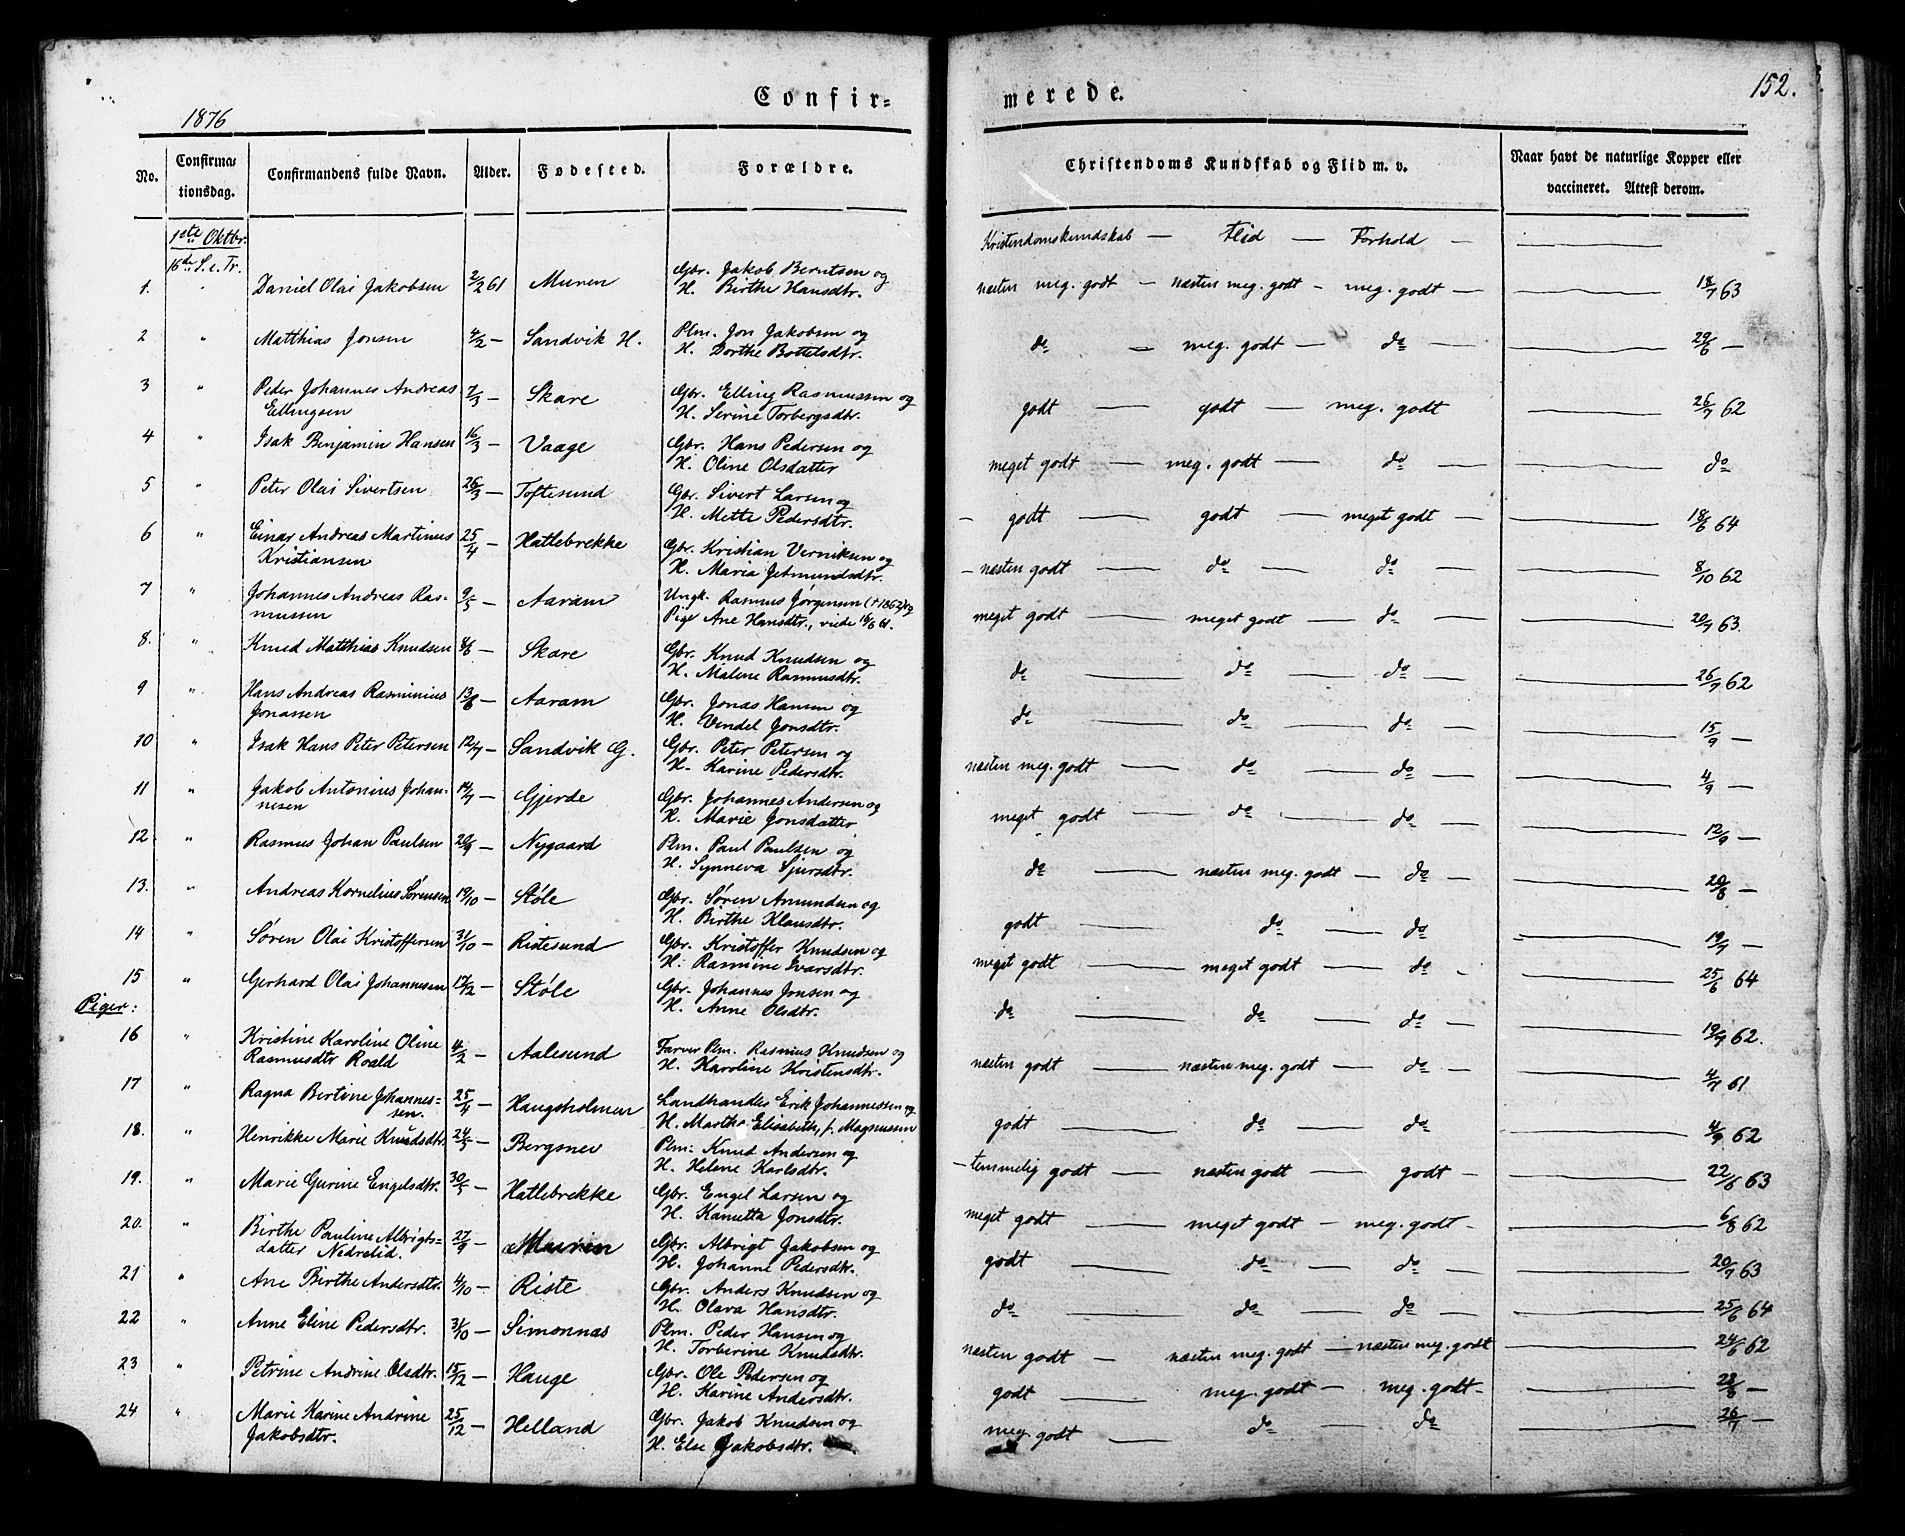 152.
Confir=
merede.
1876
No.
Confirma=
tionsdag.
Confirmandens fulde Navn.
Alder.
Fødested.
Forældre.
Christendoms Kundskab og Flid m. v.
Naar havt de naturlige Kopper eller
vaccineret. Attest derom.
1ste Oktbr.
16de S. e. Tr.
Kristendomskundskab — Flid — Forhold —
1. " Daniel Olai Jakobsen 2/2 61 Muren Gbr. Jakob Berntsen og
H. Birthe Hansdtr.
næsten meg. godt — næsten meg. godt — meg. godt — 18/7 63
2 " Matthias Jonsen 4/2 — Sandvik H. Plm. Jon Jakobsen og
H. Dorthe Bottelsdtr.
do — meg. godt — do — 29/6 —
3 " Peder Johannes Andreas 7/3 — Skare Gbr. Elling Rasmussen og
Ellingsen H. Serine Torbergsdtr.
godt — godt — meg. godt 26/7 62
4 " Isak Benjamin Hansen 16/3 — Vaage Gbr. Hans Pedersen og
H. Oline Olsdatter
meget godt — meg. godt — do — do
5 " Peter Olai Sivertsen 26/3 — Toftesund Gbr. Sivert Larsen og
H. Mette Pedersdtr.
godt — godt — meget godt — 18/6 64
6 " Einar Andreas Martinus 25/4 — Hatlebrekke
Kristiansen Gbr. Kristian Verniksen og
H. Maria Jetmundsdtr.
næsten godt — do — do — 8/10 62
7 " Johannes Andreas Ras- 9/5 — Aaram Ungk. Rasmus Jørgensen (†1862) og
mussen Pige Ane Hansdtr., viede 16/6 61.
meget godt — meget godt — do — 20/7 63.
8. " Knud Matthias Knudsen 8/6 — Skare Gbr. Knud Knudsen og
H. Malene Rasmusdtr.
do — do — do — 26/7 62
9 " Hans Andreas Rasminius 13/6 — Aaram Gbr. Jonas Hansen og
Jonassen H. Vendel Jonsdtr.
do — do — do — 15/9 —
10 " Isak Hans Peter Petersen 12/7 — Sandvik G. Gbr. Peter Petersen og
H. Karine Pedersdtr.
næsten meg. godt — do — do — 4/9 —
11 " Jakob Antonius Johan- 14/7 — Gjerde Gbr. Johannes Andersen og
nesen H. Marie Jonsdatter
meget godt — do — do — 12/9 —
12. " Rasmus Johan Paulsen 20/9 — Nygaard Plm. Paul Paulsen og
H. Synneva Sjursdtr.
do — næsten meg. godt — do — 20/8 —
13. " Andreas Kornelius Sørensen 19/10 — Støle Gbr. Søren Amundsen og
H. Birthe Klausdtr.
godt — do — do — 19/7 —
14 " Søren Olai Kristoffersen 31/10 — Ristesund Gbr. Kristoffer Knudsen og
H. Rasmine Ivarsdtr.
meget godt — meget godt — do — 25/6 64
15 " Gerhard Olai Johannesen 12/12 — Støle Gbr. Johannes Jonsen og
H. Anne Olsdtr.
do — do — do — 19/9 62.
Piger:
16 " Kristine Karoline Oline 4/2 — Aalesund Farver Plm. Rasmus Knudsen og
Rasmusdtr Roald H. Karoline Kristensdtr.
næsten godt — næsten meg. godt — do — 4/7 61
17 " Ragna Bertine Johannes= 25/4 — Haugsholmen Landhandler Erik Johannessen og
sen. H. Martha Elisabeth, f. Magnussen
godt — do — do — 4/9 62
18. " Henrikke Marie Knudsdtr. 24/5 — Bergsnev Plm. Knud Andersen og
H. Helene Karlsdtr.
temmelig godt — næsten godt — godt — 22/6 63
19. " Marie Gurine Engelsdtr. 30/5 — Hatlebrekke Gbr. Engel Larsen og
H. Kanutta Jonsdtr.
meget godt — meget godt — meg. godt — 6/8 62
20. " Birthe Pauline Albrigts= 27/9 — Muren Gbr. Albrigt Jakobsen og
datter Nedrelid. H. Johanne Pedersdtr.
godt — do — do — 20/7 63
21 " Ane Birthe Andersdtr. 4/10 — Riste Gbr. Anders Knudsen og
H. Olava Hansdtr.
do — do — do — 25/6 64
22 " Anne Eline Pedersdtr. 31/10 — Simonnæs Plm. Peder Hansen og
H. Torberine Knudsdtr.
næsten godt — næsten meg. godt — næsten meg. godt 24/6 62
23 " Petrine Andrine Olsdtr. 15/12 — Hauge Gbr. Ole Pedersen og
H. Karine Andersdtr.
godt — meg. godt — meg. godt — 28/8 —
24 " Marie Karine Andrine 25/12 — Helland Gbr. Jakob Knudsen og
Jakobsdtr. H. Else Jakobsdtr.
meg. godt — do — do — 26/7 —